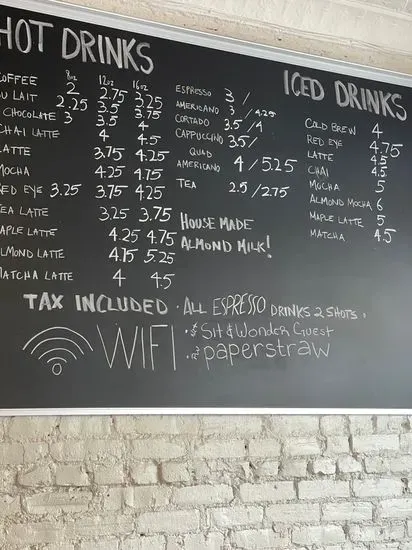 HOT DRINKS
8oz 12oz 16oz
COFFEE 2 2.75 3.25
AU LAIT 2.25 3.5 3.75
CHOCOLATE 3 3.5 4
CHAI LATTE 4 4.5
LATTE 3.75 4.25
MOCHA 4.25 4.75
RED EYE 3.25 3.75 4.25
TEA LATTE 3.25 3.75
MAPLE LATTE 4.25 4.75
ALMOND LATTE 4.75 5.25
MATCHA LATTE 4 4.5
ESPRESSO 3 /
AMERICANO 3 / 4.25
CORTADO 3.5 / 4
CAPPUCCINO 3.5 /
QUAD
AMERICANO 4 / 5.25
TEA 2.5 / 2.75
HOUSE MADE
ALMOND MILK!
ICED DRINKS
COLD BREW 4
RED EYE 4.75
LATTE 4.5
CHAI 4.5
MOCHA 5
ALMOND MOCHA 6
MAPLE LATTE 5
MATCHA 4.5
TAX INCLUDED · ALL ESPRESSO DRINKS 2 SHOTS.
WIFI
Sit & Wonder Guest
paperstraw